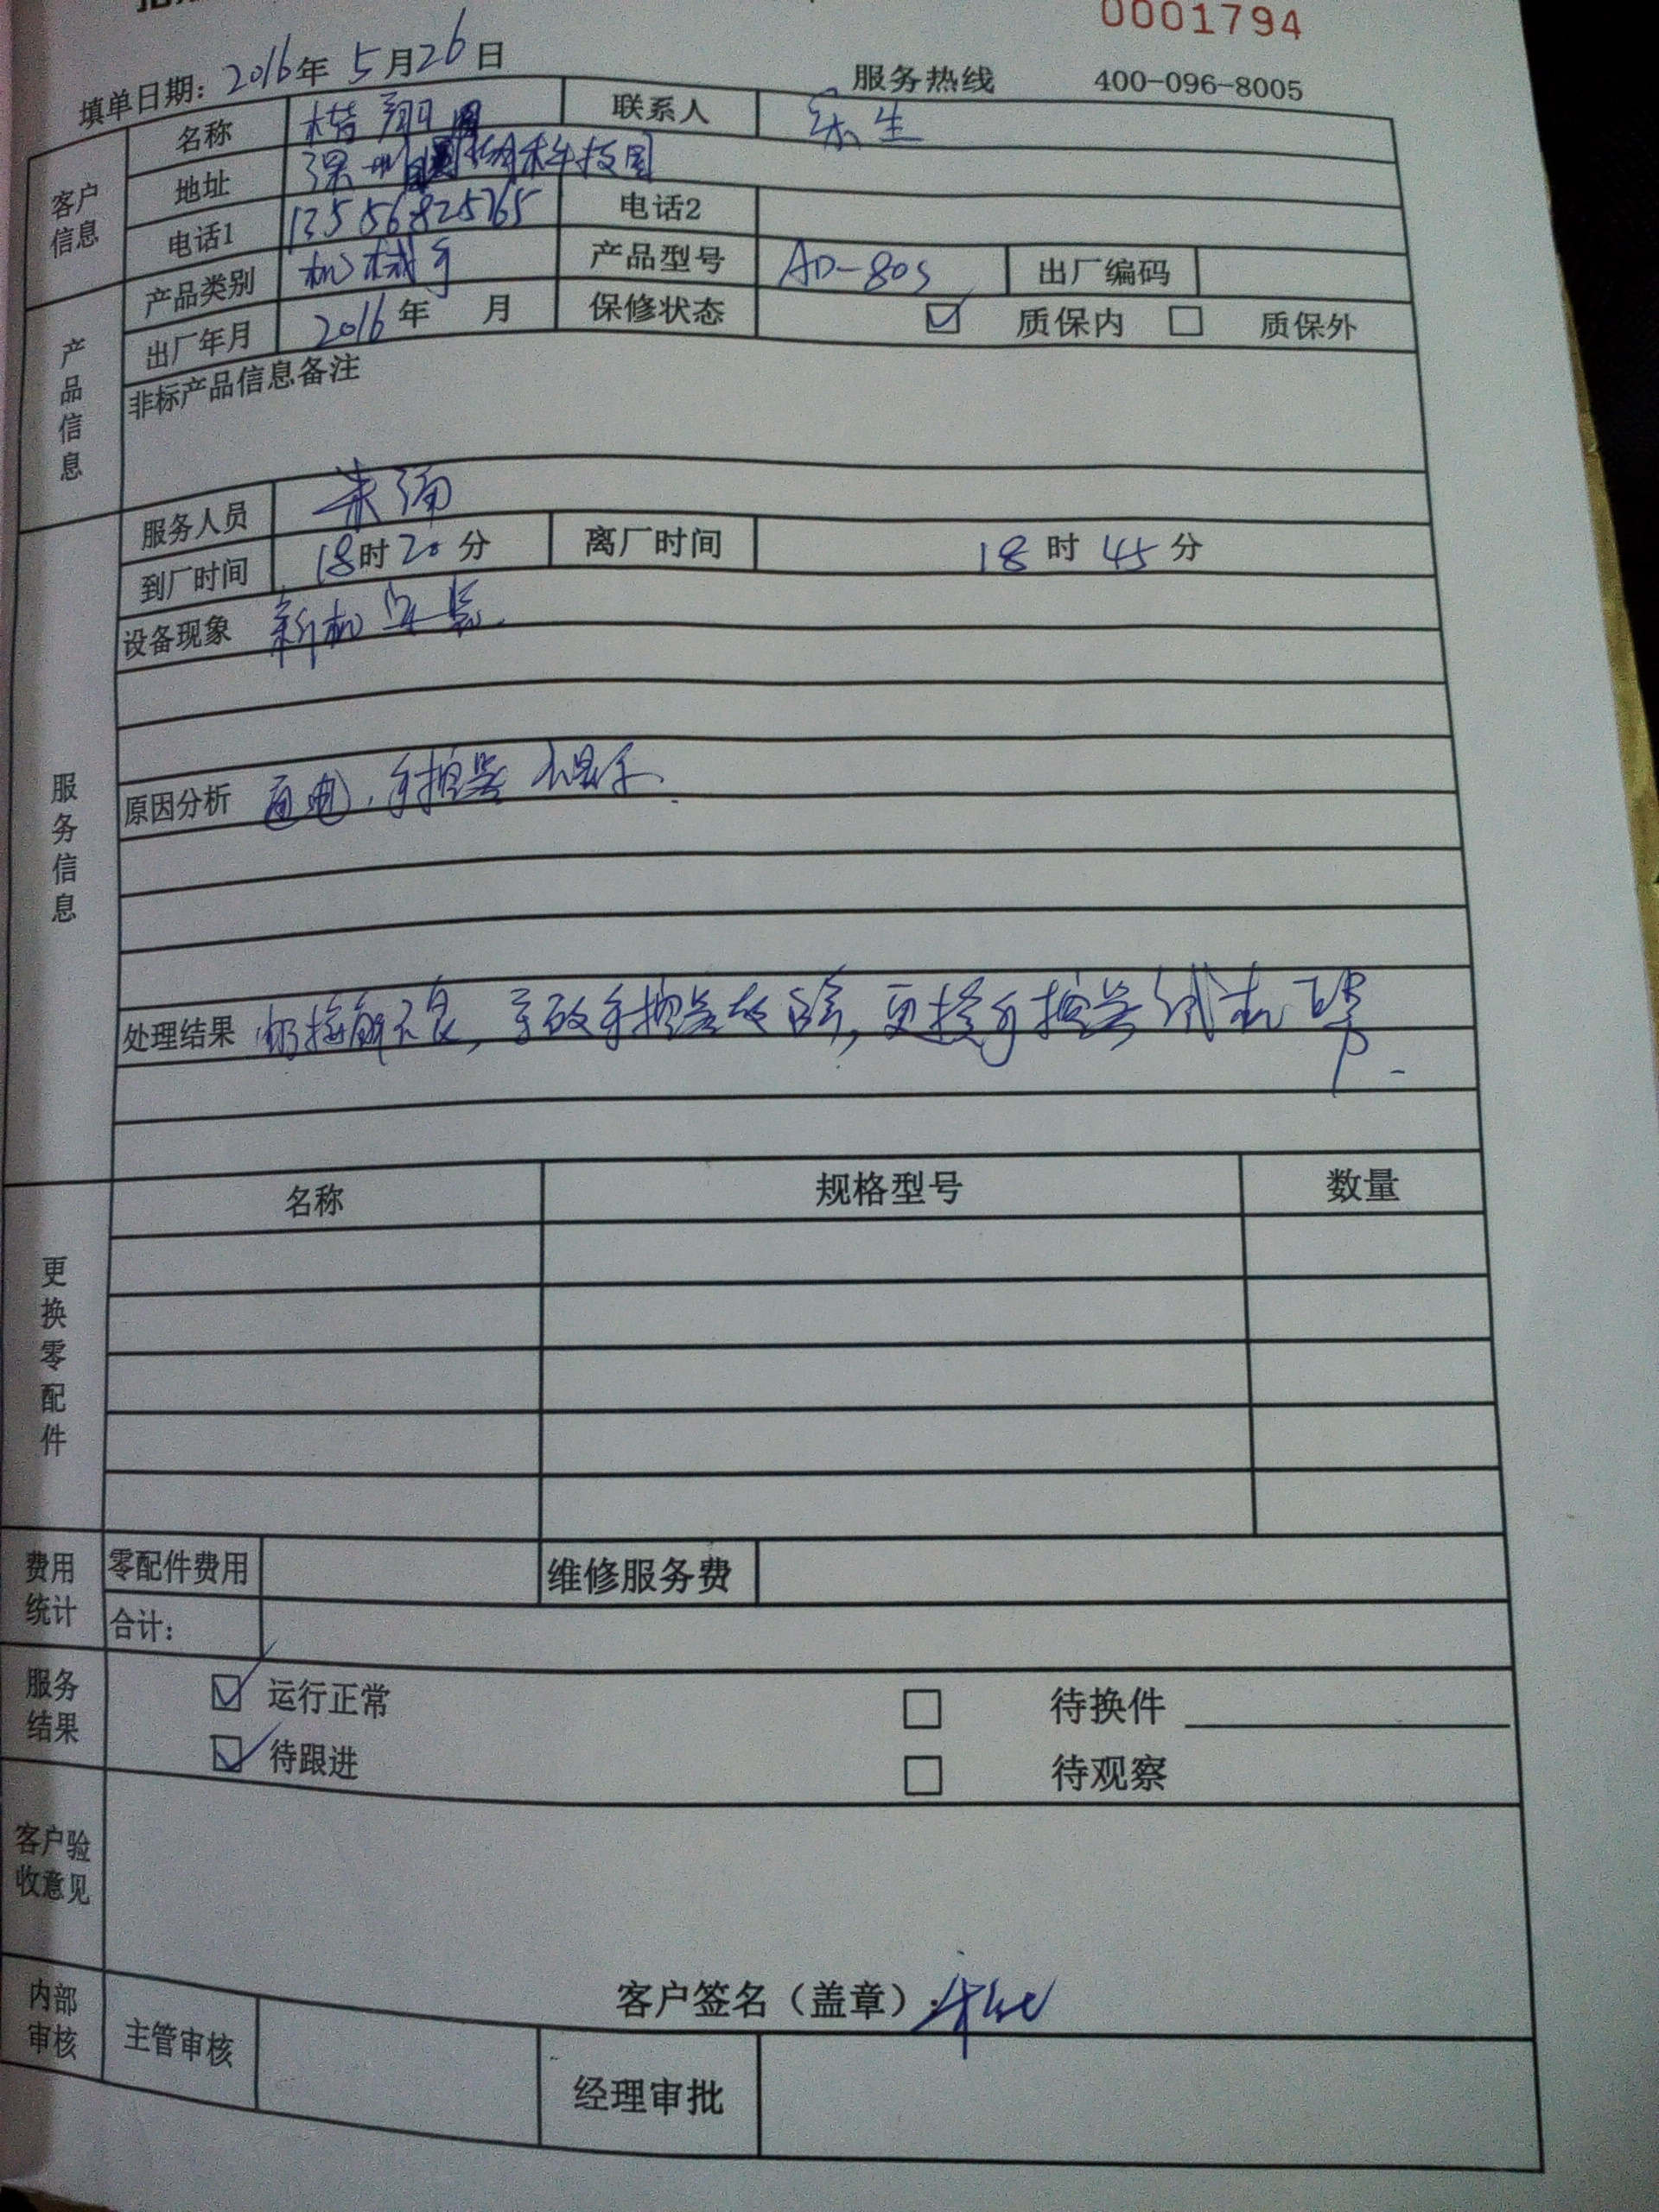 0001794
填单日期：2016年 5月26日
服务热线 400-096-8005
客户信息
名称 翔 联系人 生
地址 深圳 科技园
电话1 13556825765 电话2
产品信息
产品类别 机械手 产品型号 AD-80S 出厂编码
出厂年月 2016年 月 保修状态 ☑ 质保内 □ 质保外
非标产品信息备注
服务信息
服务人员 朱
到厂时间 18时20分 离厂时间 18时45分
设备现象 新机安装.
原因分析 通电，手控器不显示.
处理结果 接触不良，导致手控器故障，更换手控器试机
更换零配件
名称 规格型号 数量
费用统计
零配件费用 维修服务费
合计：
服务结果
☑ 运行正常 □ 待换件
☑ 待跟进 □ 待观察
客户验收意见
客户签名（盖章）：
内部审核
主管审核 经理审批